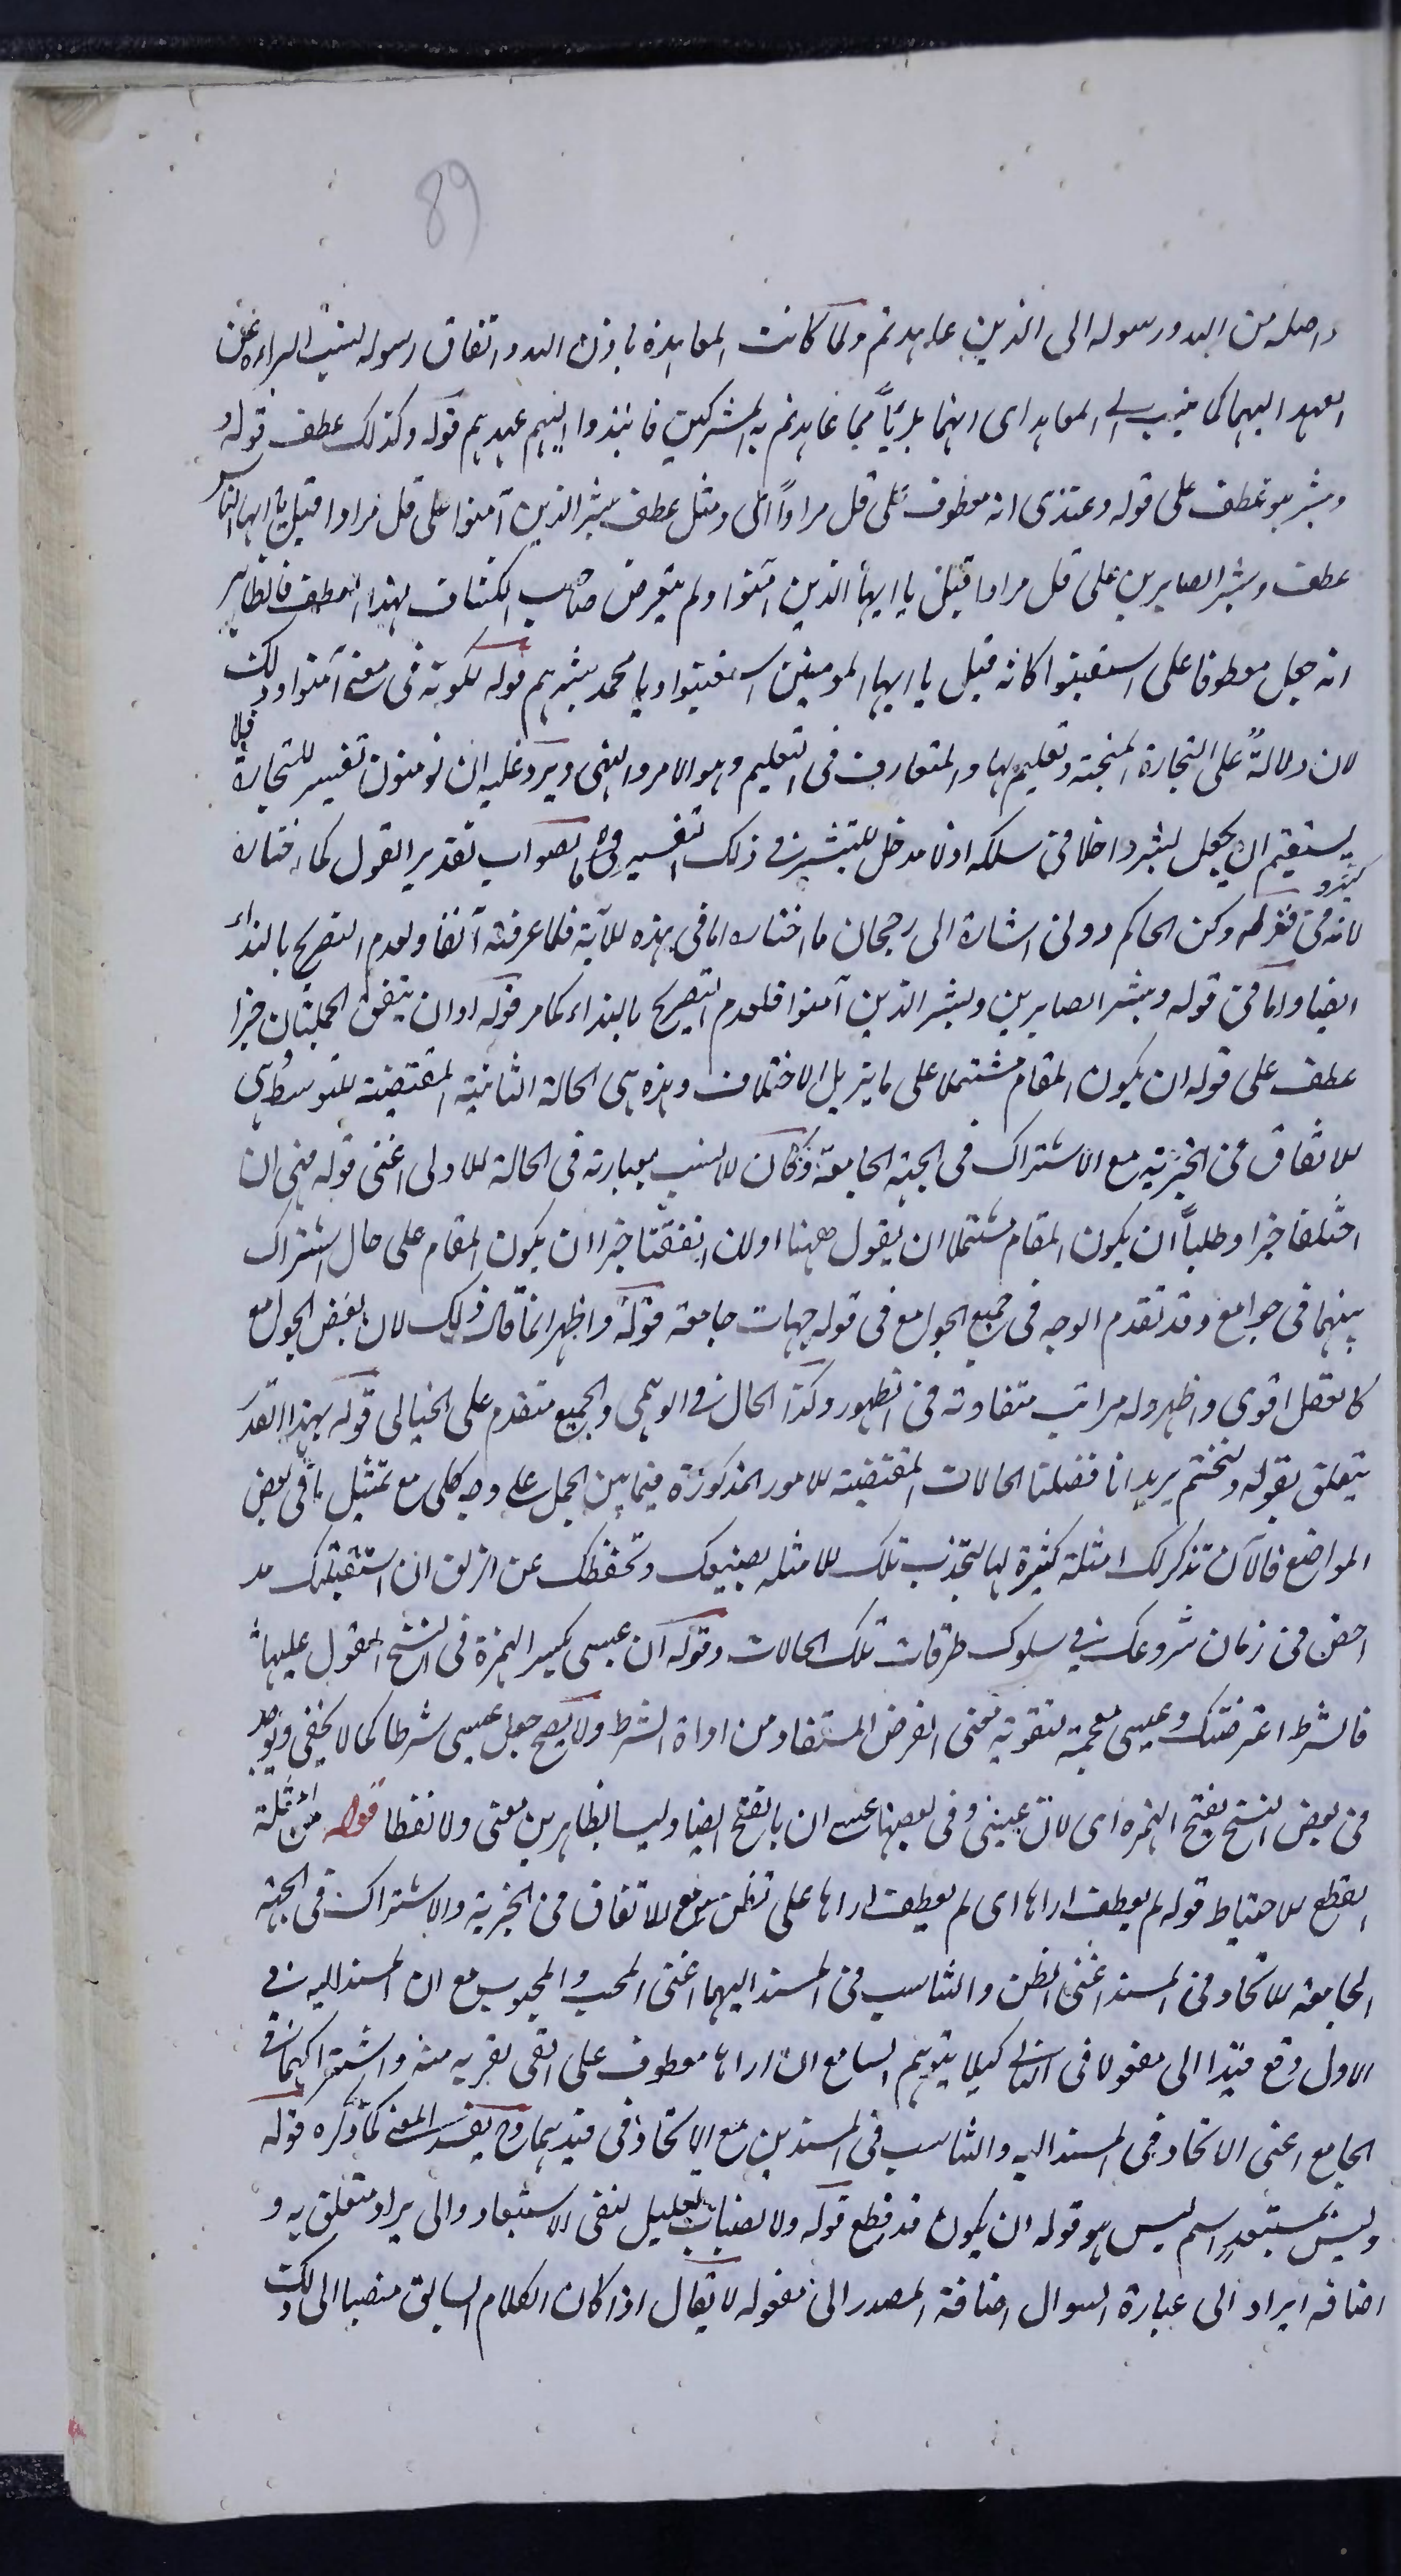 89
واصله من الله ورسوله الى الذين عاهدتم ولما كانت المعاهدة باذن الله واتفاق رسوله لنسب البراءة عن
العهد اليهما كما ينسب الى المعاهد اى انهما بريئا مما عاهدتم به المشركين فانبذوا اليهم عهدهم قوله وكذلك عطف قوله و
وبشر هو عطف على قوله وعندى انه معطوف على قل مرادا اى ومثل عطف بشر الذين آمنوا على قل مرادا قبل يا ايها الناس
عطف وبشر الصابرين على قل مرادا قبل يا ايها الذين آمنوا ولم يتعرض صاحب الكشاف بهذا العطف فالظاهر
انه جعل معطوفا على استعينوا كانه قيل يا ايها المومنين استعينوا ويا محمد بشرهم قوله لكونه فى معنى آمنوا وذلك
لان دلالة على التجارة المنجية وتعليم بها والمتعارف فى التعليم وهو الامر والنهى ويرد عليه ان تومنون تفسير للتجارة فلا
يستقيم ان يجعل بشر داخلا فى سلكه اذ لا مدخل للتبشير فى ذلك التفسير وح الصواب تقدير القول كما اختاره
لانه فى قوله وكن الحاكم دونى اشارة الى رجحان ما اختاره اما فى هذه الآية فلما عرفته آنفا ولعدم التصريح بالنداء
ايضا واما فى قوله وبشر الصابرين وبشر الذين آمنوا فلعدم التصريح بالنداء كما مر قوله او ان يتفق الجملتان خبرا
عطف على قوله ان يكون المقام مشتملا على ما يزيل الاختلاف وهذه هى الحالة الثانية المقتضية للتوسط هى
للاتفاق فى الخبرية مع الاشتراك فى الجهة الجامعة وكان الانسب بعبارته فى الحالة الاولى اعنى قوله فهى ان
اختلفا خبرا وطلبا ان يكون المقام مشتملا ان يقول ههنا اولان اتفقتا خبرا ان يكون المقام على حال اشتراك
بينهما فى جوامع وقد تقدم الوجه فى جميع الجوامع فى قوله جهات جامعة قوله واظهر انما قال ذلك لان بعض الجوامع
كالعقل اقوى واظهر وله مراتب متفاوتة فى الظهور وكذا الحال فى الوهمى والجميع متقدم على الخيالى قوله بهذا القدر
يتعلق بقوله ولنختم يريد انا فصلنا الحالات المقتضية للامور المذكورة فيما بين الجمل على وجه كلى مع تمثيل ما فى بعض
المواضع فالآن تذكر لك امثلة كثيرة لها لتجذب تلك الامثله بضبعيك وتحفظك عن الزلق ان استقبلتك مد
احض فى زمان شروعك فى سلوك طرقات تلك الحالات وقوله ان عسى بكسر الهمزة فى النسخ المعول عليها
فالشرط اعترضتك وعسى مقحمة لتقوية معنى الفرض المستفاد من اداة الشرط ولا يصح جعل عسى شرطا كما لا يخفى ويوجد
فى بعض النسخ بفتح الهمزه اى لان عسى وفى بعضها عسى ان بالفتح ايضا وليسا بظاهرين معنى ولا لفظا قوله من امثلة
القطع للاحتياط قوله لم يعطف اراها اى لم يعطف اراها على تظن مع الاتفاق فى الخبرية والاشتراك فى الجهة
الجامعة للاتحاد فى المسند اعنى الظن والتناسب فى المسند اليهما اعنى المحب والمحبوب مع ان المسند اليه فى
الاول وقع مبتدا الى مفعولا فى الثانى كيلا يتوهم السامع ان اراها معطوف على ابغى لقربه منه واشتراكهما فى
الجامع اعنى الاتحاد فى المسند اليه والتناسب فى المسندين مع الاتحاد فى قيديهما وح يفسد المعنى كما ذكره قوله
وليس بمستبعد اسم ليس هو قوله ان يكون قد قطع قوله ولا نصبابه تعليل لنفى الاستبعاد والى يراد متعلق به و
اضافه ايراد الى عبارة السوال اضافة المصدر الى مفعوله لا يقال اذا كان الكلام السابق منصبا الى ذلك